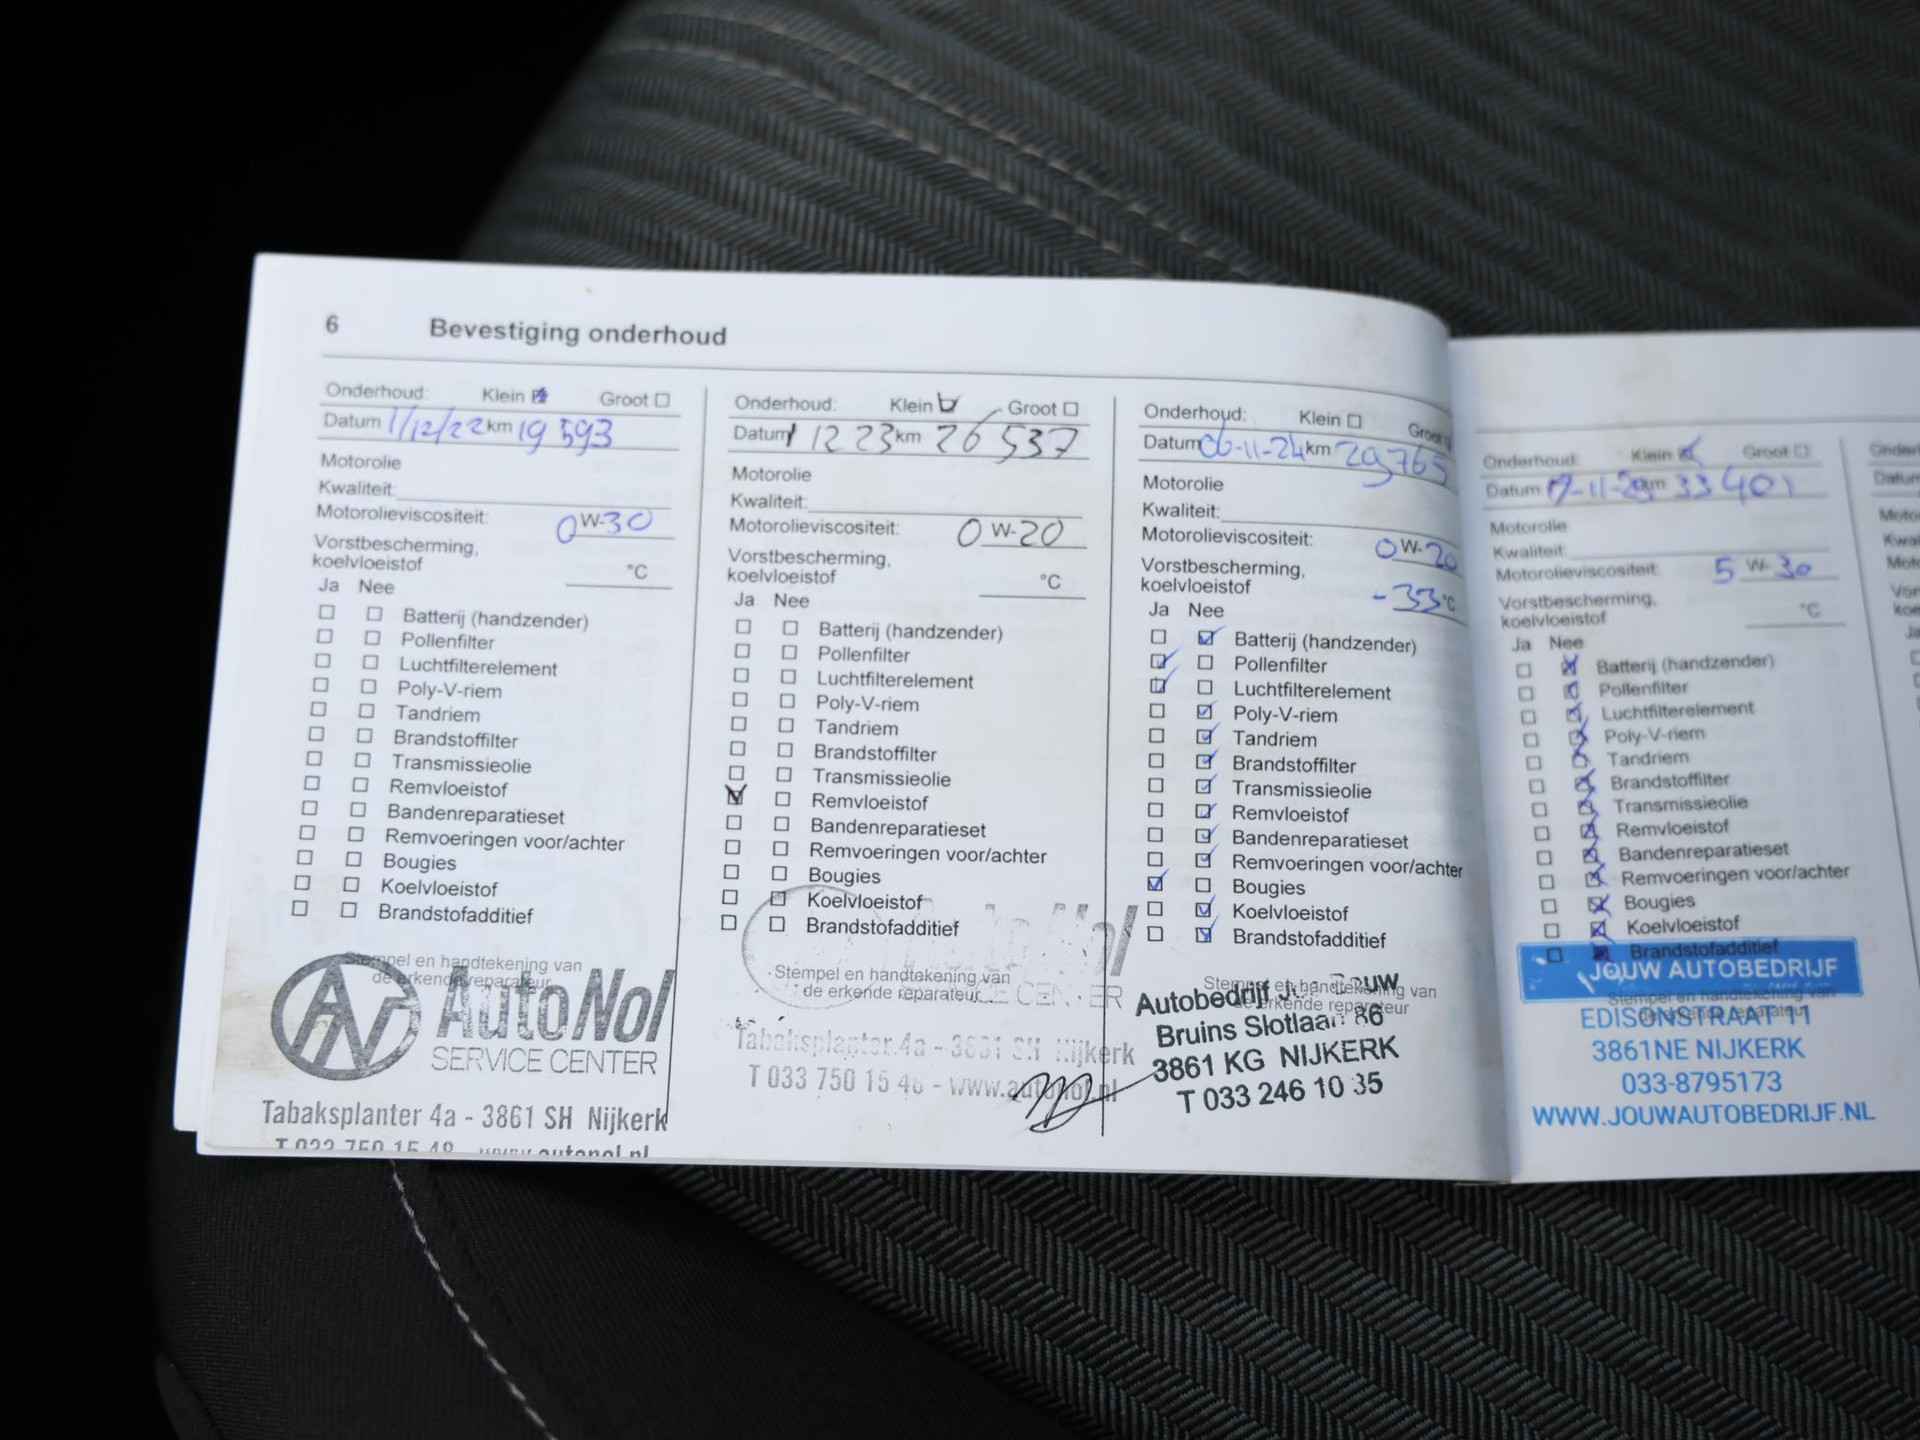 6 Bevestiging onderhoud
Onderhoud: Klein Groot
Datum 1/12/22 km 19 593
Motorolie
Kwaliteit:
Motorolieviscositeit: 0 W-30
Vorstbescherming,
koelvloeistof °C
Ja Nee
Batterij (handzender)
Pollenfilter
Luchtfilterelement
Poly-V-riem
Tandriem
Brandstoffilter
Transmissieolie
Remvloeistof
Bandenreparatieset
Remvoeringen voor/achter
Bougies
Koelvloeistof
Brandstofadditief
Stempel en handtekening van
de erkende reparateur
AN AutoNol
SERVICE CENTER
Tabaksplanter 4a - 3861 SH Nijkerk
T 033 750 15 48 www.autonol.nl
Onderhoud: Klein Groot
Datum 1 12 23 km 26 537
Motorolie
Kwaliteit:
Motorolieviscositeit: 0 W-20
Vorstbescherming,
koelvloeistof °C
Ja Nee
Batterij (handzender)
Pollenfilter
Luchtfilterelement
Poly-V-riem
Tandriem
Brandstoffilter
Transmissieolie
Remvloeistof
Bandenreparatieset
Remvoeringen voor/achter
Bougies
Koelvloeistof
Brandstofadditief
AutoNol
Stempel en handtekening van
de erkende reparateur
CENTER
Tabaksplanter 4a - 3861 SH Nijkerk
T 033 750 15 48 - www.autonol.nl
Onderhoud: Klein Groot
Datum 06-11-24 km 29765
Motorolie
Kwaliteit:
Motorolieviscositeit: 0 W-20
Vorstbescherming,
koelvloeistof -33 °C
Ja Nee
Batterij (handzender)
Pollenfilter
Luchtfilterelement
Poly-V-riem
Tandriem
Brandstoffilter
Transmissieolie
Remvloeistof
Bandenreparatieset
Remvoeringen voor/achter
Bougies
Koelvloeistof
Brandstofadditief
Stempel en handtekening van
de erkende reparateur
Autobedrijf
Bruins Slotlaan 86
3861 KG NIJKERK
T 033 246 10 35
Onderhoud: Klein Groot
Datum km 33 401
Motorolie
Kwaliteit:
Motorolieviscositeit: 5 W-30
Vorstbescherming,
koelvloeistof °C
Ja Nee
Batterij (handzender)
Pollenfilter
Luchtfilterelement
Poly-V-riem
Tandriem
Brandstoffilter
Transmissieolie
Remvloeistof
Bandenreparatieset
Remvoeringen voor/achter
Bougies
Koelvloeistof
Brandstofadditief
JOUW AUTOBEDRIJF
Stempel en handtekening van
de erkende reparateur
EDISONSTRAAT 11
3861NE NIJKERK
033-8795173
WWW.JOUWAUTOBEDRIJF.NL